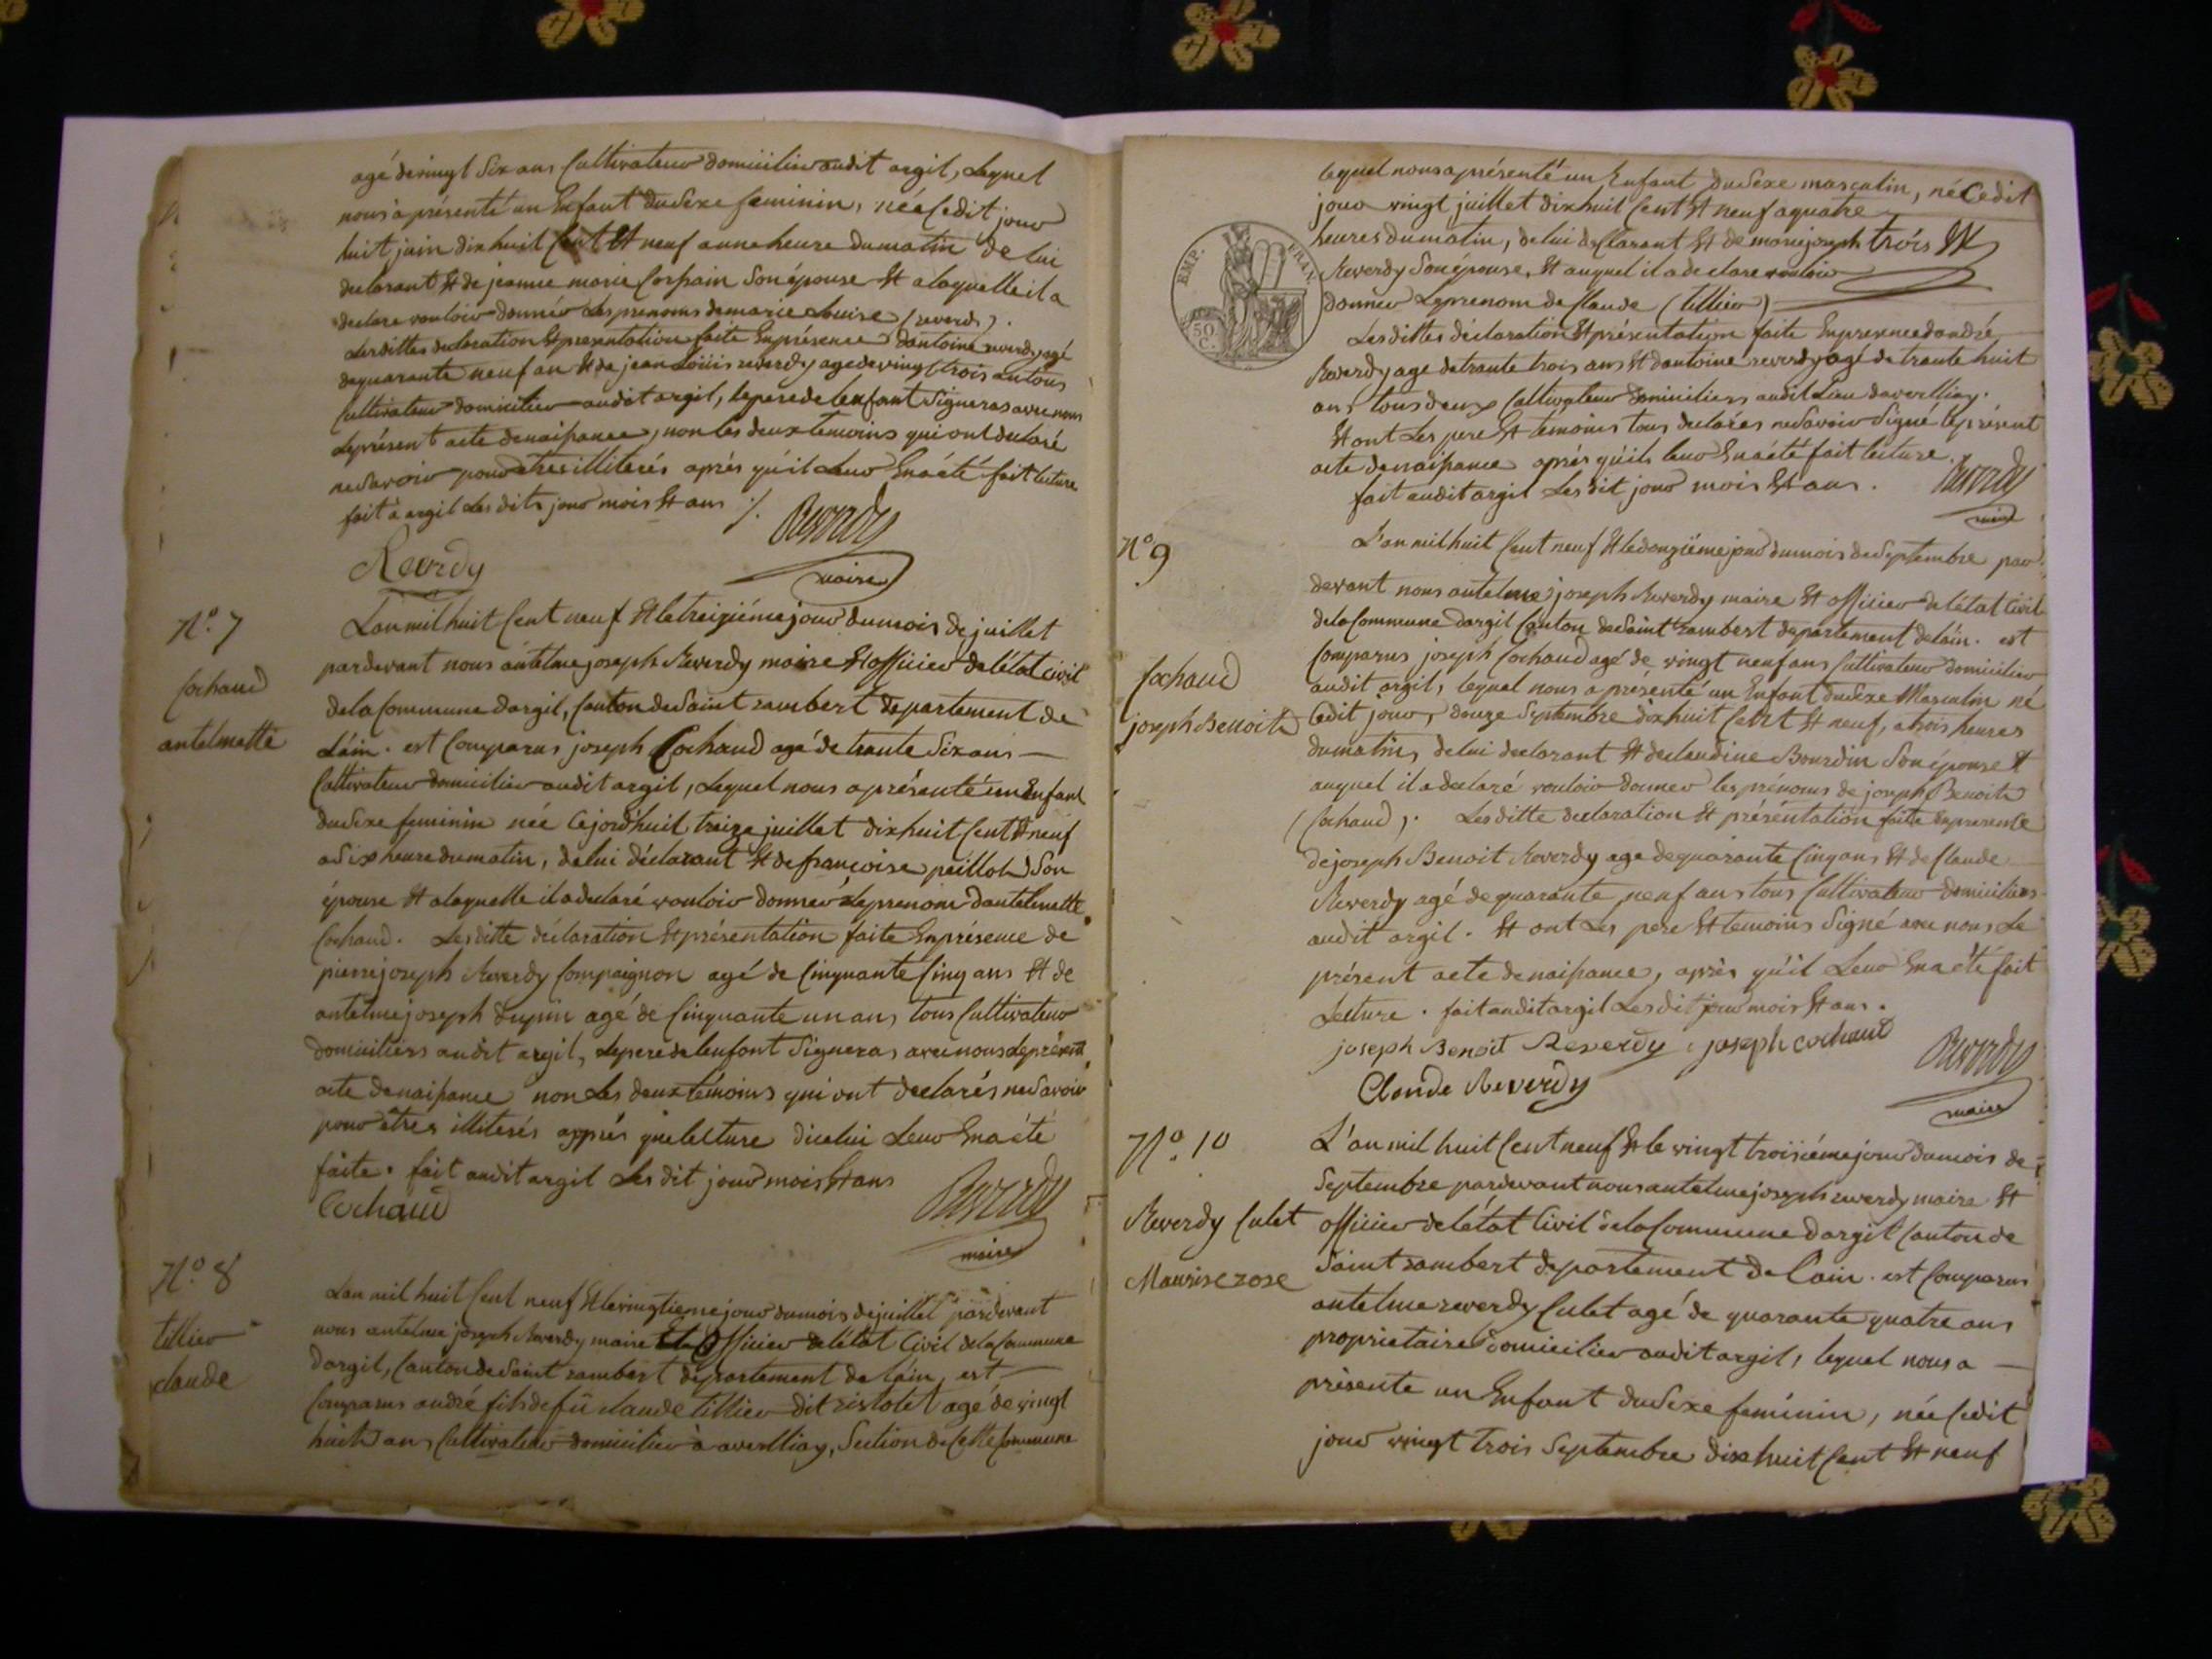 agé de vingt six ans Cultivateur domicilier audit argil, Lequel
nous a présenté un Enfant du Sexe feminin, née Cedit jour
huit juin dix huit Cent Et neuf a une heure du matin de lui
declarant Et de jeanne marie Son épouse Et a laquelle il a
declare vouloir donnér Les prenoms de marie Louise (reverdy).
Lesdittes declaration Et presentation faite En présence d'antoine reverdy agé
de quarante neuf an Et de jean Louis reverdy age de vingt trois an tous
Cultivateur domicilier audit argil, le pere de lenfant Signeras avec nous
Le présent acte de naissance, non les deux temoins qui ont declaré
ne Savoir pour etres illiterés aprés qu'il Leur En a été fait lecture
fait à argil Les dits jour mois Et ans ·/.
Reverdy
Reverdy
maire
N.º 7
Cochaud
antelmette
L'an mil huit Cent neuf Et le treiziéme jour du mois de juillet
pardevant nous antelme joseph Reverdy maire Et officier de létat civil
de la Commune dargil, Canton de Saint rambert departement de
Láin. est Comparus joseph Cochaud agé de trante Six ans —
Cultivateur domicilier audit argil, Lequel nous a présenté un Enfant
du Sexe feminin née Cejord'huil treize juillet dix huit Cent Et neuf
a Six heure du matin, de lui déclarant Et de francoise peillod Son
épouse Et a laquelle il a declaré vouloir donner Le prenom dantelmette
Cochaud. Lesditte déclaration Et présentation faite En présence de
pierre joseph Reverdy Compaignon agé de Cinquante Cinq ans Et de
antelme joseph dupin agé de Cinquante un ans tous Cultivateur
domiciliers audit argil, Le pere de lenfant Signeras avec nous le présent
acte de naissance non Les deux témoins qui ont declarés ne Savoir
pour étres illiterés apprés que lecture dicelui Leur En a été
faite. fait audit argil Les dit jour mois Et ans
Cochaud
Reverdy
maire
N.º 8
tillier
claude
Lan mil huit Cent neuf Et le vingtieme jour du mois de juillet pardevant
nous antelme joseph Reverdy maire Et Officier de létat Civil de la Commune
Dargil, Canton de Saint rambert département de láin, est —
Comparus andré fils de fû claude tillier dit ristolet agé de vingt
huit ans Cultivateur domicilier à averlliay, Section de Cette Commune
lequel nous a présenté un Enfant du Sexe masculin, né Cedit
jour vingt juillet dix huit Cent Et neuf a quatre
heures du matin, de lui declarant Et de marie joseph trois Et
Reverdy Son épouse, Et auquel il a declare vouloir
donner Le prenom de Claude (tillier)
EMP. FRAN.
50
C.
Lesdittes déclaration Et présentation faite En presence dandré
Reverdy age de trante trois ans Et dantoine reverdy agé de trante huit
ans tous deux Cultivateur domiciliers audit Lieu daverlliay.
Et ont Les pere Et temoins tous declarés ne Savoir Signé le présent
acte de naissance aprés qu'ils leur En a été fait lecture.
fait audit argil Les dit jour mois Et ans.
Reverdy
maire
Nº 9
Cochaud
joseph Benoit
L'an mil huit Cent neuf Et le douziéme jour du mois de Septembre par
devant nous antelme joseph Reverdy maire Et officier de létat Civil
de la Commune dargil Canton de Saint rambert departement de láin. est
Comparus joseph Cochaud agé de vingt neuf ans Cultivateur domicilier
audit argil, lequel nous a présenté un Enfant du Sexe Masculin né
Cedit jour, douze Septembre dix huit Cent Et neuf, a trois heures
du matin, de lui declarant Et de claudine Bourdin Son épouse Et
auquel il a declaré vouloir donner les prénoms de joseph Benoit
(Cochaud). Lesditte declaration Et présentation faite En presence
de joseph Benoit Reverdy age de quarante Cinq ans Et de Claude
Reverdy agé de quarante neuf ans tous Cultivateur domiciliers
audit argil. Et ont Les pere Et temoins Signé avec nous Le
présent acte de naissance, aprés qu'il Leur En a été fait
Lecture. fait audit argil Les dit jour mois Et ans.
joseph Benoit Reverdy joseph cochaud
Claude Reverdy
Reverdy
maire
N.º 10
Reverdy Culet
Maurise rose
L'an mil huit Cent neuf Et le vingt troisiéme jour du mois de
Septembre pardevant nous antelme joseph reverdy maire Et
officier de létat Civil de la Commune dargil Canton de
Saint rambert departement de Lain. est Comparus
antelme reverdy Culet agé de quarante quatre ans
proprietaire domicilier audit argil, lequel nous a —
présenté un Enfant du Sexe feminin, née Cedit
jour vingt trois Septembre dix huit Cent Et neuf